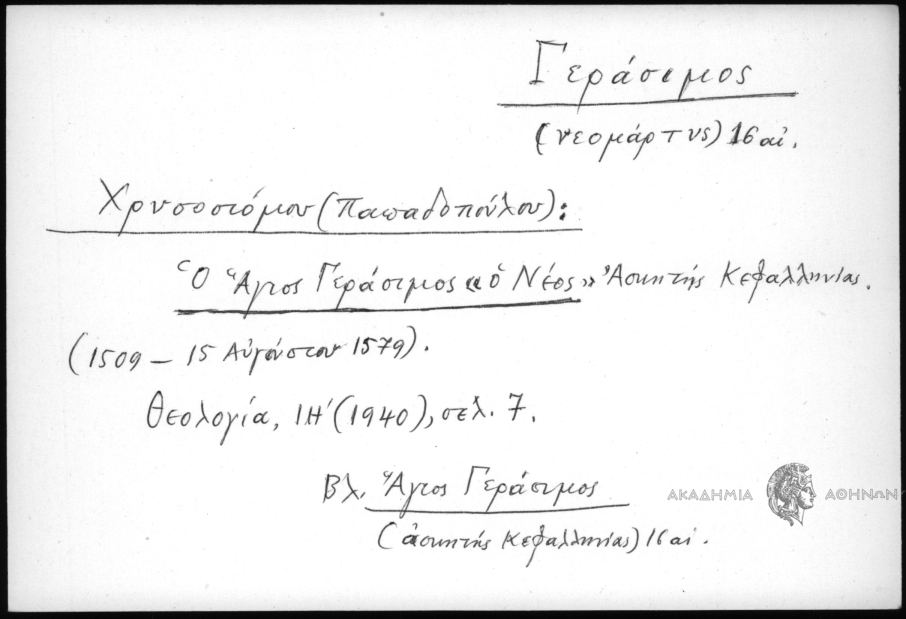 Γεράσιμος
(νεομάρτυς) 16 αἰ.
Χρυσοστόμου (Παπαδοπούλου):
Ὁ Ἅγιος Γεράσιμος «ὁ Νέος» Ἀσκητής Κεφαλληνίας.
(1509 – 15 Αὐγούστου 1579).
Θεολογία, ΙΗ' (1940), σελ. 7.
Βλ. Ἅγιος Γεράσιμος
(ἀσκητής Κεφαλληνίας) 16 αἰ.
ΑΚΑΔΗΜΙΑ ΑΘΗΝΩΝ